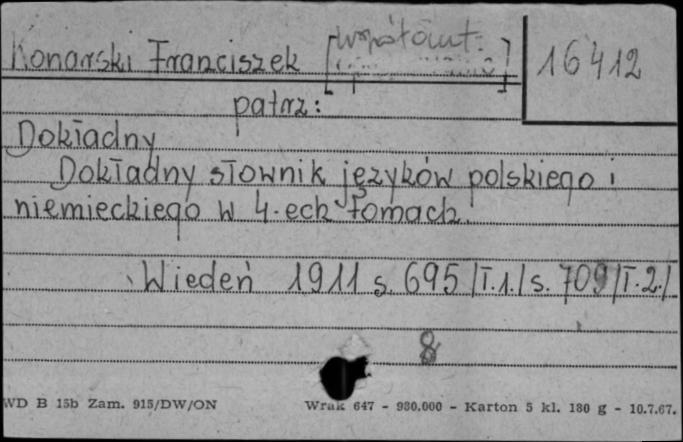 Konarski Franciszek [współaut.
16412
patrz:
Dokładny
Dokładny słownik języków polskiego i
niemieckiego w 4-ech tomach.
Wiedeń 1911 s. 695 /T.1./ s. 709 /T.2./
8
WD B 15b Zam. 915/DW/ON Wrak 647 - 980.000 - Karton 5 kl. 180 g - 10.7.67.